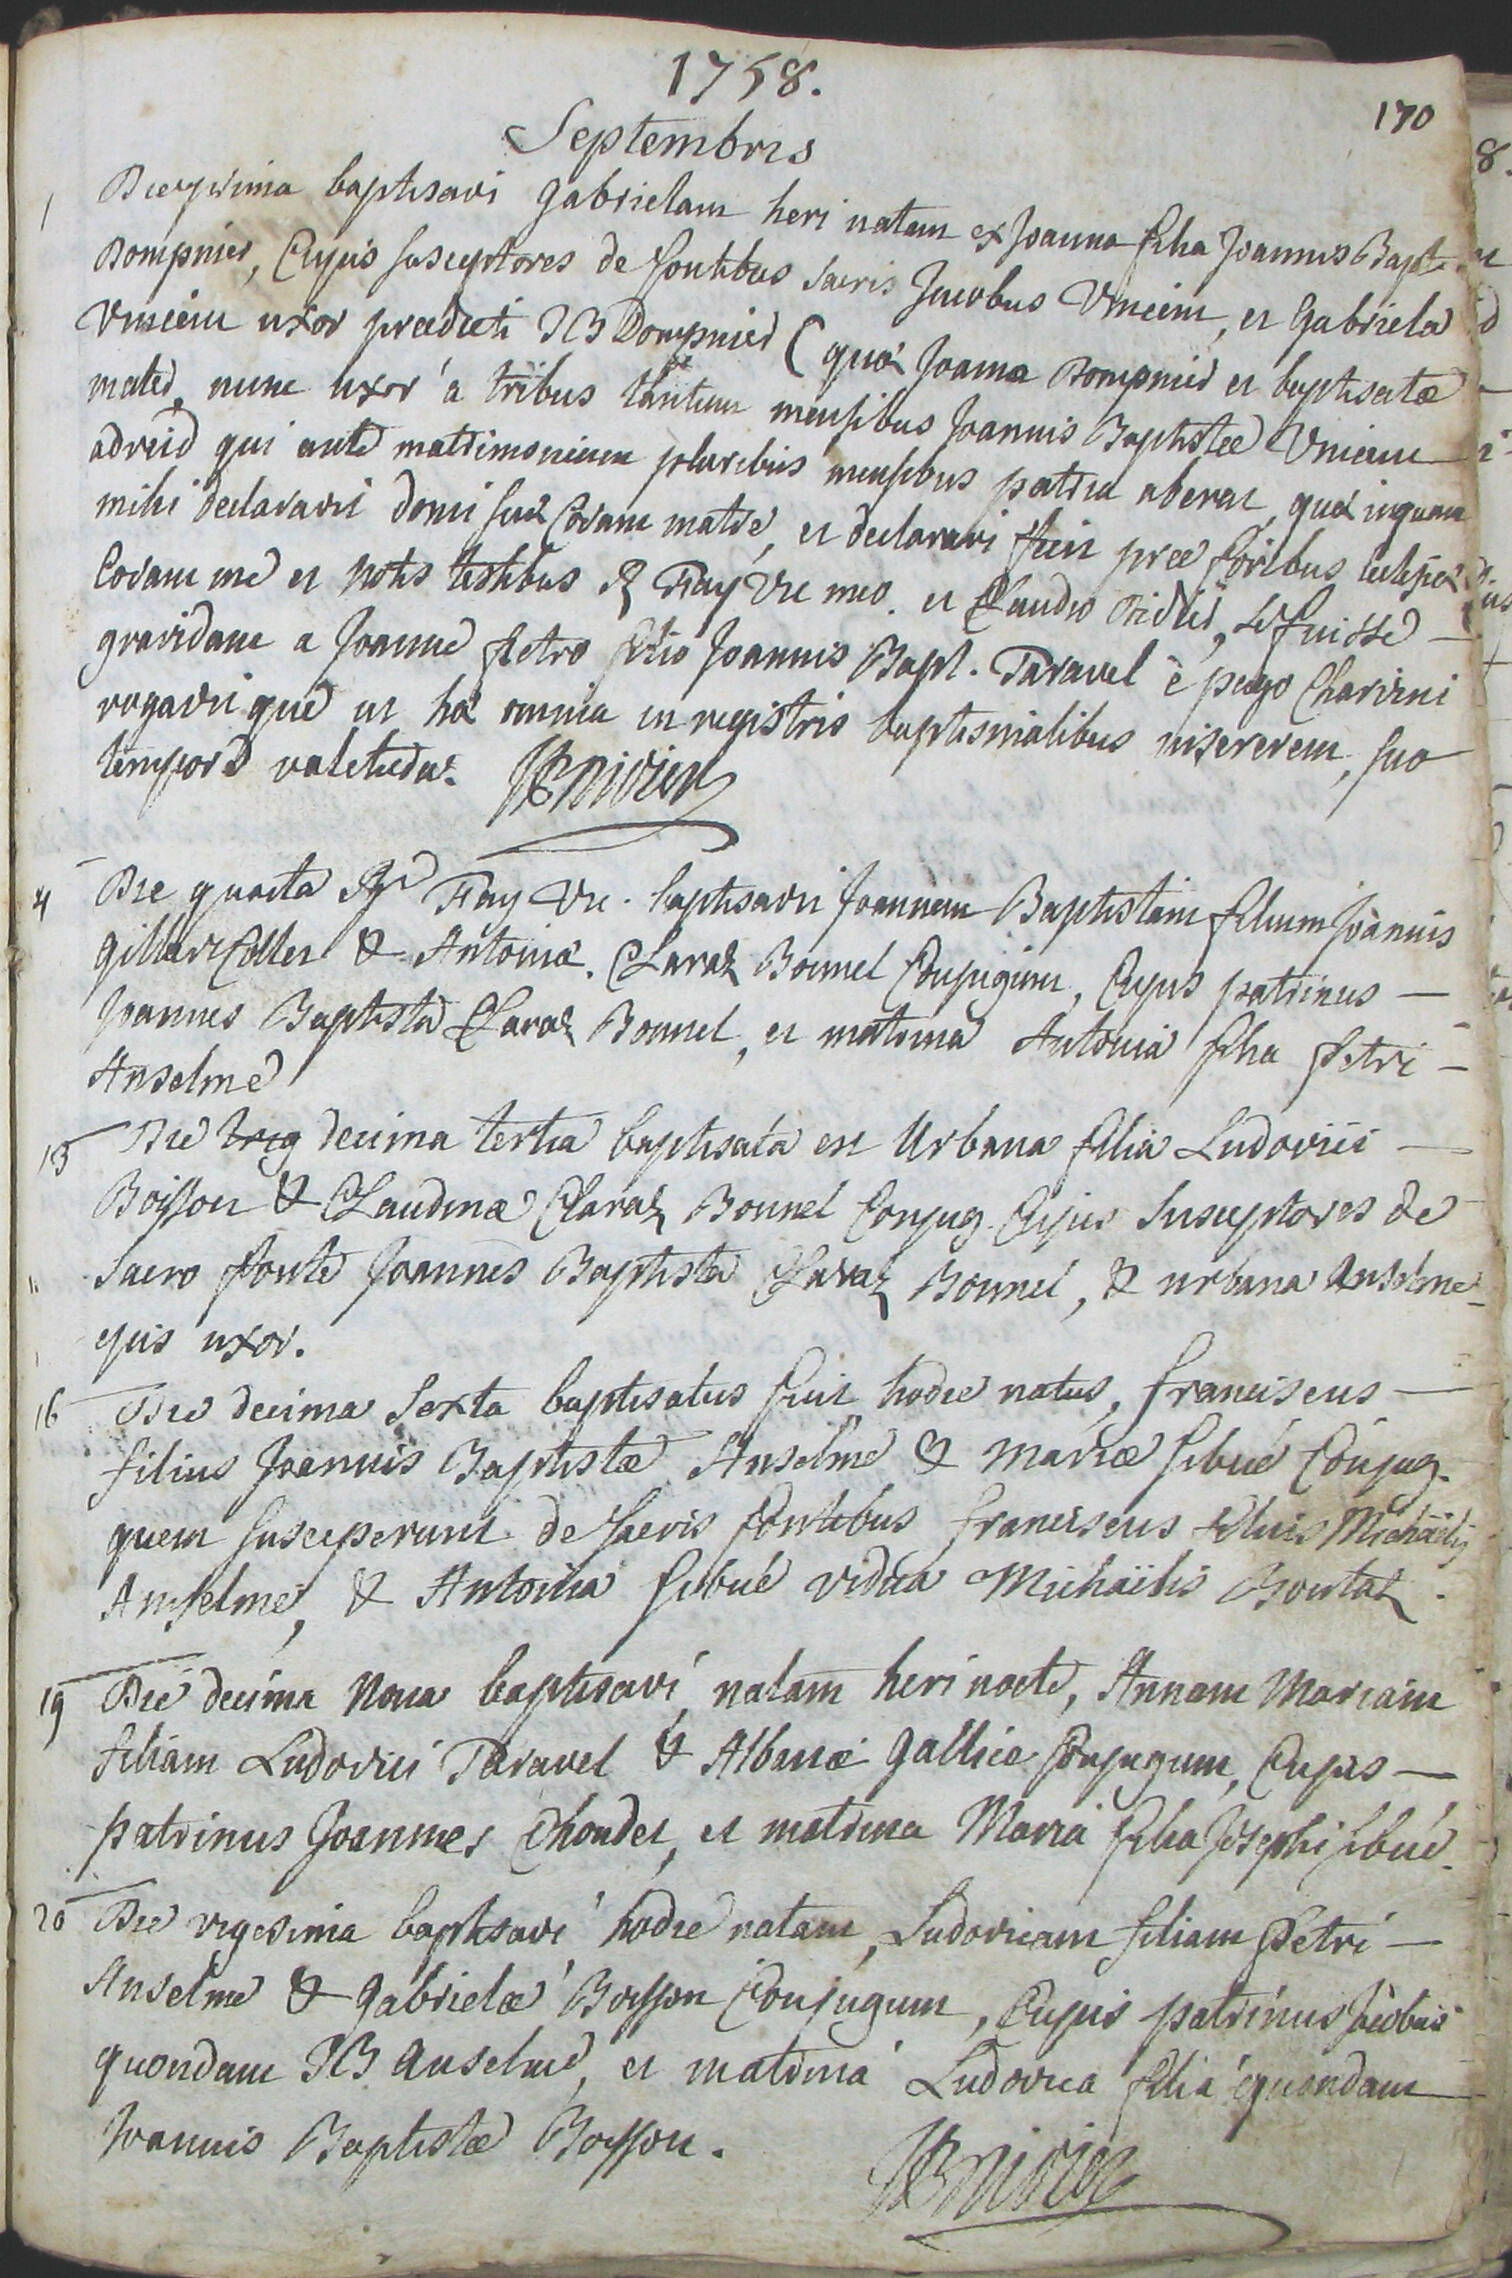 1758.
170
Septembris
1 Die prima baptisavi Gabrielam heri natam ex Joanna filia Joannis Bapt.
Dompnier, Cujus susceptores de fontibus sacris Jacobus Vincein, et Gabriela
Vincein uxor prædicti JB Dompnier (quæ Joanna Dompnier et baptisatæ
mater, nunc uxor à tribus tantum mensibus Joannis Baptistæ Vincein
qui ante matrimonium pluribus mensibus patria aberat, quæ inquam
mihi declaravit domi suæ Coram matre, et declarari fecit præ foribus ecclesiæ
Coram me et notis testibus R Fay Vic meo. et Claudio Didier, se fuisse
gravidam a Joanne Petro filio Joannis Bapt. Taravel è pago Charvini
rogavitque ut hæc omnia in registris baptismalibus insererem, suo
tempore valetudas.
4 Die quarta Rd Fay Vic. baptisavit Joannem Baptistam filium Joannis
Gillavi Collet & Antoniæ Claraz Bonnel Conjugum, Cujus patrinus —
Joannes Baptista Claraz Bonnel, et matrina Antonia filia Petri —
Anselme
13 Die trig decima tertia baptisata est Urbana filia Ludovici —
Boisson & Claudinæ Claraz Bonnel Conjug. Cujus Susceptores de
Sacro fonte Joannes Baptista Claraz Bonnel, & urbana Anselme
ejus uxor.
16 Die decima Sexta baptisatus fuit hodie natus, franciscus —
filius Joannis Baptistæ Anselme & mariæ sibué Conjug.
quem susceperunt de sacris fontibus franciscus filius Michaëlis
Anselme, & Antonia sibué vidua Michaëlis Boutaz.
19 Die decima Nona baptisavi natam heri nocte, Annam Mariam
filiam Ludovici Taravel & Albanæ Gallice Conjugum, Cujus —
patrinus Joannes Choudet, et matrina Maria filia Josephi sibué.
20 Die vigesima baptisavi hodie natam, Ludovicam filiam Petri —
Anselme & Gabrielæ Boisson Conjugum, Cujus patrinus Jacobus
quondam JB Anselme, et matrina Ludovica filia quondam
Joannis Baptistæ Boisson.